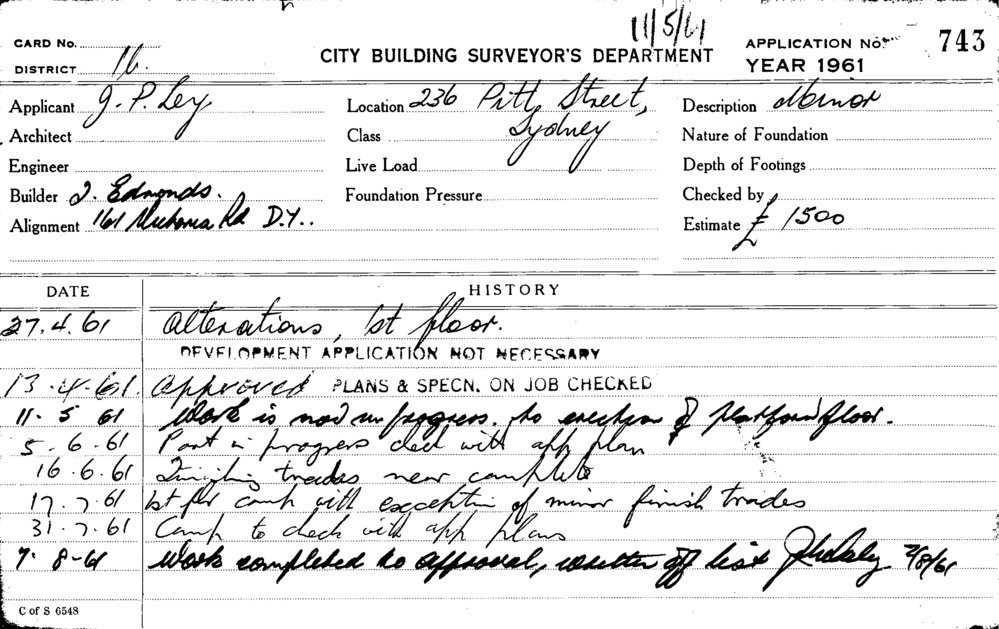 11/5/61
CARD No.
CITY BUILDING SURVEYOR'S DEPARTMENT
APPLICATION No. 743
DISTRICT 16.
YEAR 1961
Applicant J. P. Ley
Location 236 Pitt Street,
Sydney
Description Minor
Architect
Class
Nature of Foundation
Engineer
Live Load
Depth of Footings
Builder J. Edmonds.
Foundation Pressure
Checked by
Alignment 161 Victoria Rd D.Y..
Estimate £ 1500
DATE HISTORY
27.4.61 Alterations, 1st floor.
DEVELOPMENT APPLICATION NOT NECESSARY
13.4.61. Approved PLANS & SPECN. ON JOB CHECKED
11.5 61 Work is now in progress. to erection of platform floor.
5.6.61 Part in progress check with app plan
16.6.61 Finishing trades near complete
17.7.61 1st flr comp with exception of minor finish trades
31.7.61 Comp to check with app plans
7.8-61 Work completed to approval, written off list 7/8/61
C of S 6548